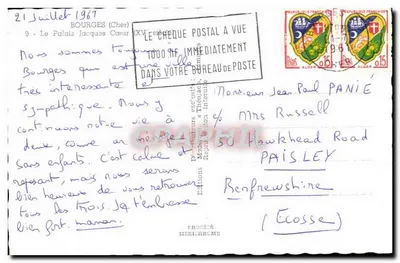 21 Juillet 1967
BOURGES (Cher)
9 - Le Palais Jacques Cœur
Nous sommes toujours à
Bourges qui est une ville
très intéressante et
sympathique. Nous y
continuons notre vie à
deux, comme un ménage
sans enfants. C'est calme et
reposant, mais nous serons
bien heureux de vous retrouver
tous les trois. Je t'embrasse
bien fort. maman.
LE CHEQUE POSTAL A VUE
1000 NF IMMÉDIATEMENT
DANS VOTRE BUREAU DE POSTE
1967
0,15
0,15
Monsieur Jean Paul PANIÉ
c/o Mrs Russell
50 Hawkhead Road
PAISLEY
Renfrewshire
(Ecosse)
PROCÉDÉ